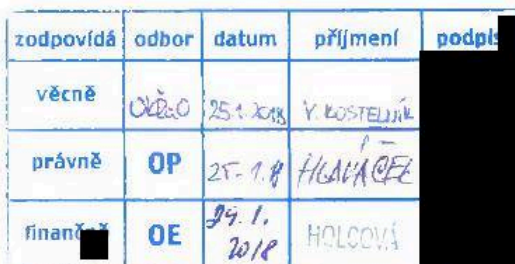 zodpovídá odbor datum příjmení podpis
věcně 25.1.2018 V. KOSTELNÍK
právně OP 25.1.18 HLAVÁČEK
finančně OE 29.1.2018 HOLCOVÁ